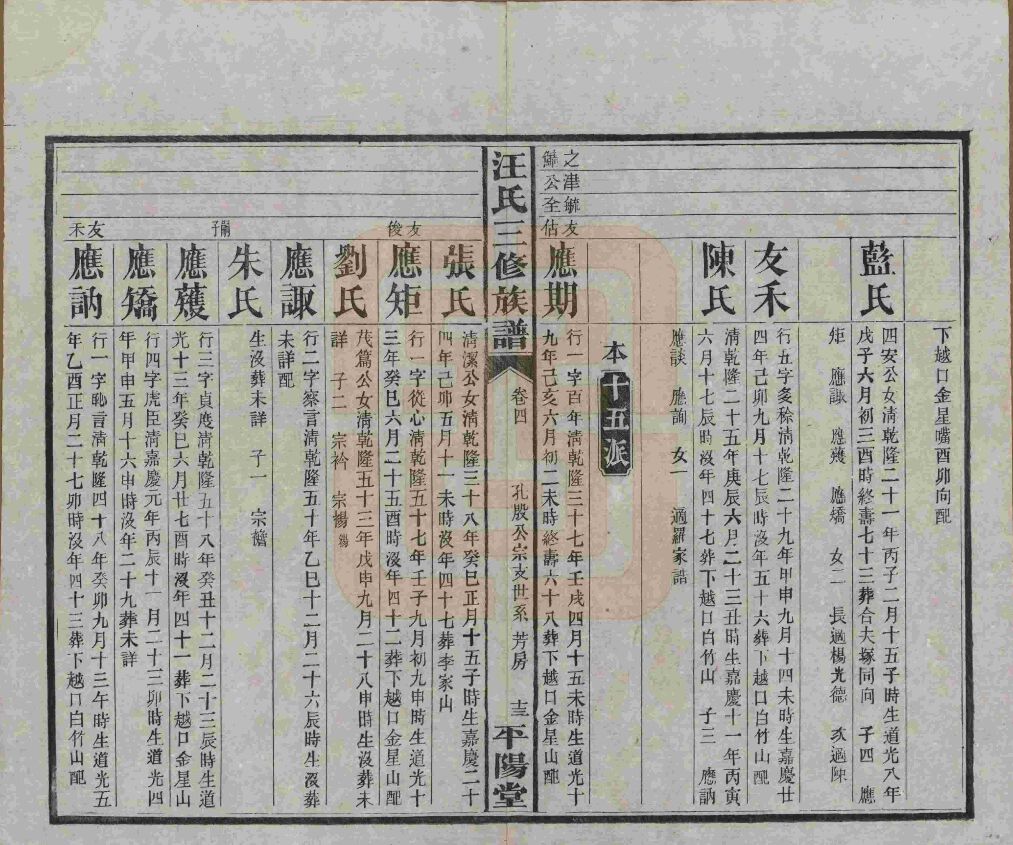 下越口金星嘴酉卯向配
藍氏
四安公女清乾隆二十一年丙子二月十五子時生道光八年
戊子六月初三酉時終壽七十三葬合夫塚同向 子四 應
矩 應諏 應䕶 應矯 女二 長適楊光德 次適陳
友禾
行五字多稌清乾隆二十九年甲申九月十四未時生嘉慶廿
四年己卯九月十七辰時沒年五十六葬下越口白竹山配
陳氏
清乾隆二十五年庚辰六月二十三丑時生嘉慶十一年丙寅
六月十七辰時沒年四十七葬下越口白竹山 子三 應訥
應談 應詢 女一 適羅家誥
本十五派
之津毓友
公全估
應期
行一字百年清乾隆三十七年壬戌四月十五未時生道光十
九年己亥六月初二未時終壽六十八葬下越口金星山配
汪氏三修族譜
卷四
孔殷公宗支世系 芳房
十三
平陽堂
張氏
清溪公女清乾隆三十八年癸巳正月十五子時生嘉慶二十
四年己卯五月十一未時沒年四十七葬李家山
友俊
應矩
行一字從心清乾隆五十七年壬子九月初九申時生道光十
三年癸巳六月二十五酉時沒年四十二葬下越口金星山配
劉氏
茂篇公女清乾隆五十三年戊申九月二十八申時生沒葬未
詳 子二 宗衿 宗惕
應諏
行二字察言清乾隆五十年乙巳十二月二十六辰時生沒葬
未詳配
朱氏
生沒葬未詳 子一 宗
嗣子
應䕶
行三字貞度清乾隆五十八年癸丑十二月二十三辰時生道
光十三年癸巳六月廿七酉時沒年四十一葬下越口金星山
應矯
行四字虎臣清嘉慶元年丙辰十一月二十三卯時生道光四
年甲申五月十六申時沒年二十九葬未詳
友禾
應訥
行一字言清乾隆四十八年癸卯九月十三年時生道光五
年乙酉正月二十七卯時沒年四十三葬下越口白竹山配